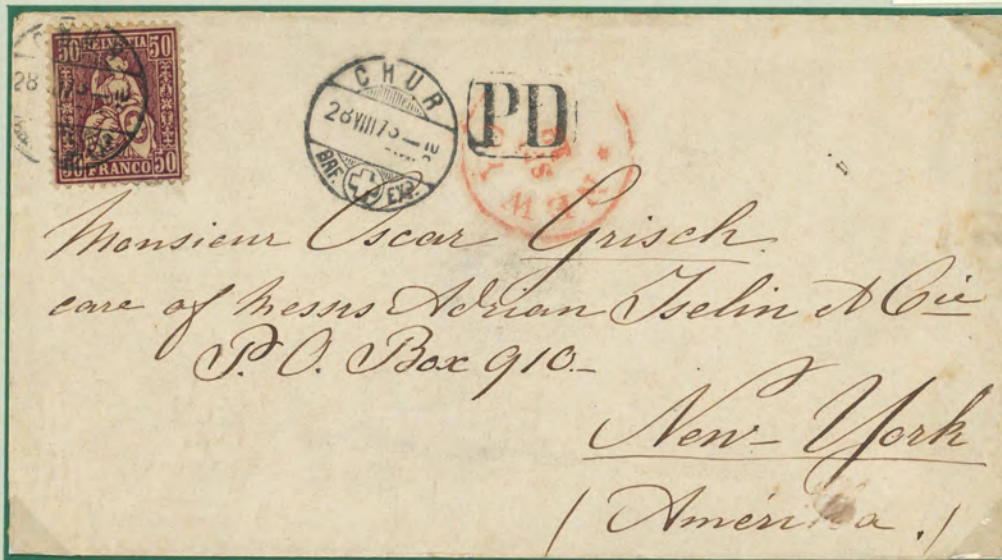 50 HELVETIA 50
50 FRANCO 50
CHUR
28 VIII 73
BRF. EXP.
PD
NEW
Monsieur Oscar Grisch
care of Messrs Adrian Iselin & Cie
P. O. Box 910.
New-York
(América.)